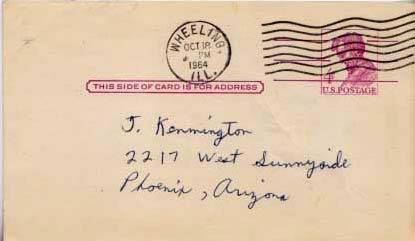 WHEELING,
OCT 18
PM
1964
ILL.
4¢
U.S. POSTAGE
THIS SIDE OF CARD IS FOR ADDRESS
J. Kennington
2217 West Sunnyside
Phoenix, Arizona